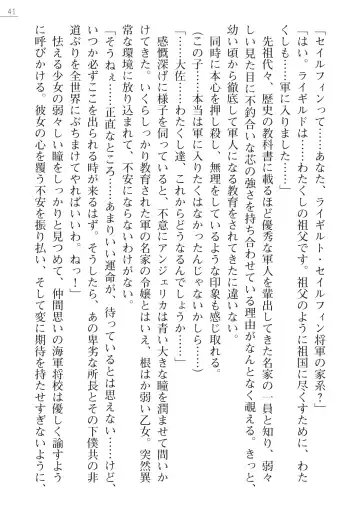 41
「セイルフィンって……あなた、ライギルト・セイルフィン将軍の家系？」
「はい。ライギルドは……わたくしの祖父です。祖父のように祖国に尽くすために、わた
くしも……軍に入りました……」
先祖代々、歴史の教科書に載るほど優秀な軍人を輩出してきた名家の一員と知り、弱々
しい見た目に不釣合いな芯の強さを持ち合わせている理由がなんとなく窺える。きっと、
幼い頃から徹底して軍人になる教育をされてきたに違いない。
同時に本心を押し殺し、無理しているような印象も感じ取れる。
（この子……本当は軍に入りたくはなかったんじゃないかしら……）
「……大佐……わたくし達、これからどうなるんでしょうか……」
感慨深げに様子を伺っていると、不意にアンジェリカは青い大きな瞳を潤ませて問いか
けてきた。いくらしっかり教育された軍の名家の令嬢とはいえ、根はか弱い乙女。突然異
常な環境に放り込まれて、不安にならないわけがない。
「そうねぇ……正直なところ……あまりいい運命が、待っているとは思えない……けど、
いつか必ずここを出られる時が来るはず。そうしたら、あの卑劣な所長とその下僕共の非
道ぶりを全世界にぶちまけてやればいいわ。ねっ！」
怯える少女の弱々しい瞳をしっかりと見つめて、仲間思いの海軍将校は優しく諭すよう
に呼びかける。彼女の心を覆う不安を振り払い、そして変に期待を持たせすぎないように、